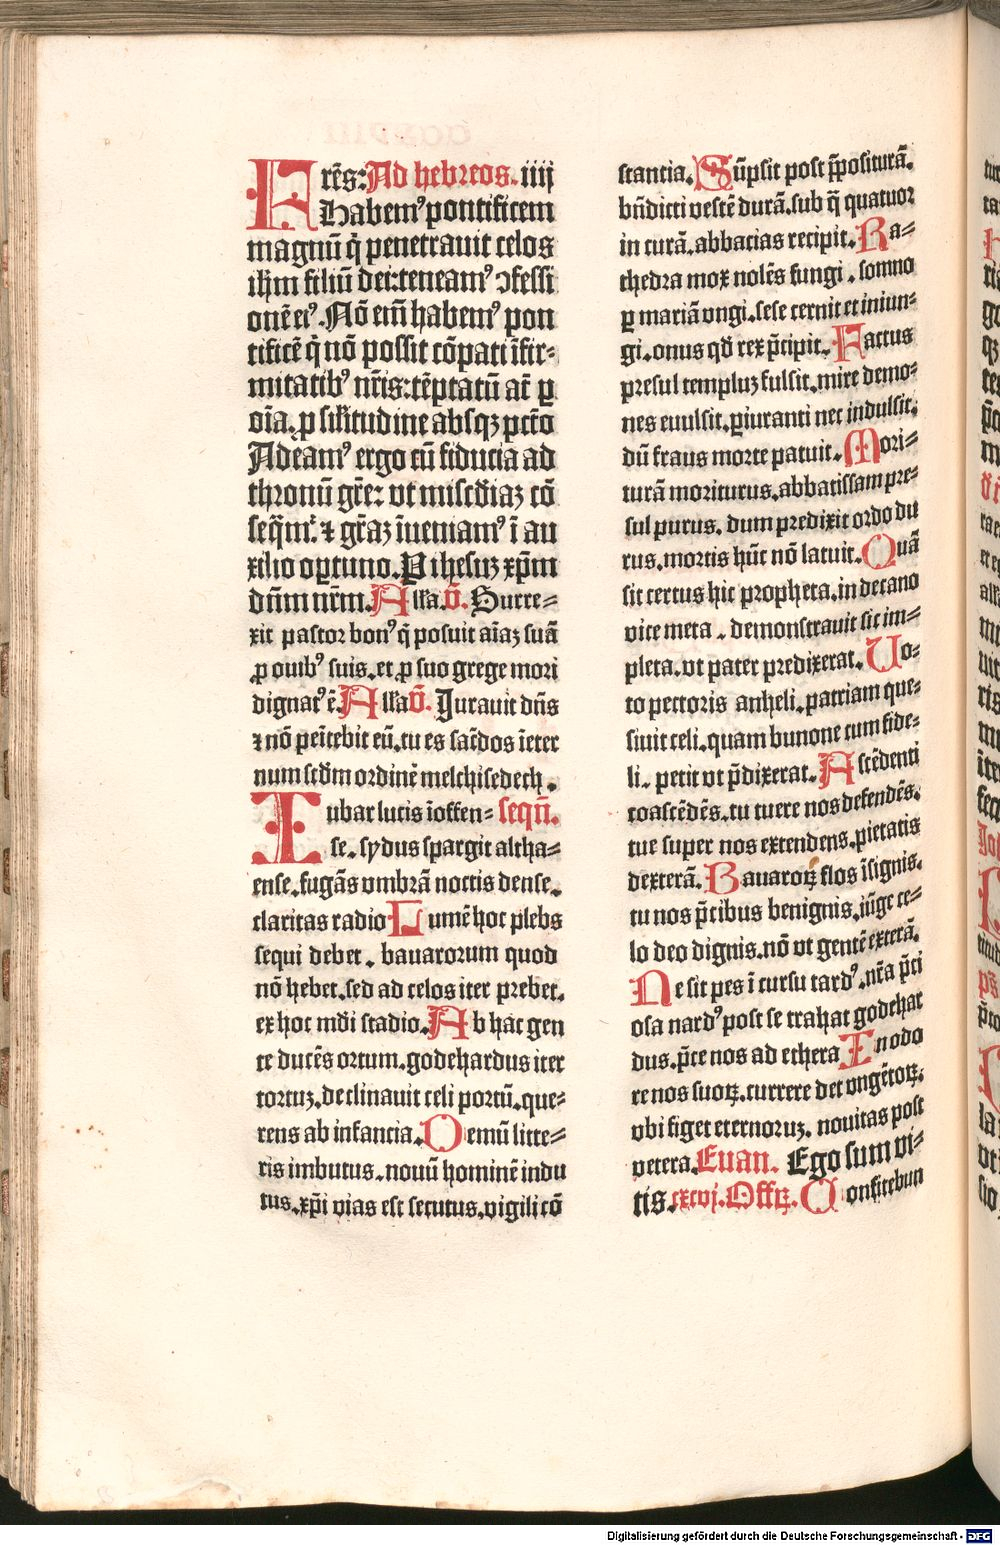 Frēs: Ad hebreos. iiij
Habemꝰ pontificem
magnū q̇ penetrauit celos
ihm filiū dei: teneamꝰ ↄfessi
onē eiꝰ. Nō em̄ habemꝰ pon
tificē q̇ nō possit cōpati īfir-
mitatibꝰ nr̄is: tēptatū at̄ ꝑ
oīa. ꝓ sīlitudine absqꝫ pctō
Adeamꝰ ergo cū fiducia ad
thronū gr̄e: vt misc̄diaꝫ cō
seq̄mr̄. ⁊ gr̄aꝫ īueniamꝰ ī au
xilio oꝑtuno. P ihesuꝫ xp̄m
dn̄m nr̄m. Alla. v̄. Surre-
xit pastor bonꝰ q̇ posuit aīaꝫ suā
ꝓ ouibꝰ suis. et ꝓ suo grege mori
dignatꝰ ē. Alla v̄. Jurauit dn̄s
⁊ nō peītebit eū. tu es sac̄dos ieter
num scd̄m ordinē melchisedech.
Iubar lucis īoffen- seqn̄.
se. sydus spargit altha-
ense. fugās vmbrā noctis dense.
claritas radio Lumē hoc plebs
sequi debet. bauarorum quod
nō hebet. sed ad celos iter prebet.
ex hoc mūdi stadio. Ab hac gen
te ducēs ortum. godehardus iter
tortuꝫ. declinauit celi portū. que-
rens ab infancia. Demū litte-
ris imbutus. nouū hominē indu
tus. xp̄i vias est secutus. vigili cō
stantia. Sūpsit post p̄posituram̄.
bn̄dicti vestē durā. sub q̄ quatuor
in curā. abbacias recipit. Ka-
thedra mox nolēs fungi. somno
ꝑ mariā vngi. sese cernit et iniun-
gi. onus qd̄ rex p̄cipit. Factus
presul templuꝫ fulsit. mire demo-
nes euulsit. ꝑiuranti nec indulsit.
dū fraus morte patuit. Mori-
turā moriturus. abbatissam pre-
sul purus. dum predixit ordo du
rus. mortis hūc nō latuit. Quā
sit certus hic propheta. in decano
vite meta. demonstrauit sic im-
pleta. vt pater predixerat. Vo-
to pectoris anheli. patriam que-
siuit celi. quam bunone cum fide-
li. petit vt p̄dixerat. Ascēdenti
coascēdēs. tu tuere nos defendēs.
tue super nos extendens. pietatis
dexterā. Bauaroꝝ flos īsignis.
tu nos p̄cibus benignis. iūge ce-
lo deo dignis. nō vt gentē exterā.
Ne sit pes ī cursu tardꝰ. nr̄a p̄ci
osa nardꝰ post se trahat godehar
dus. p̄ce nos ad ethera Enodo
re nos suoꝝ. currere det vngētoꝝ.
vbi figet eternoruꝫ. nouitas post
vetera. Euan. Ego sum vi-
tis. cxcvj. Offꝝ. Confitebun